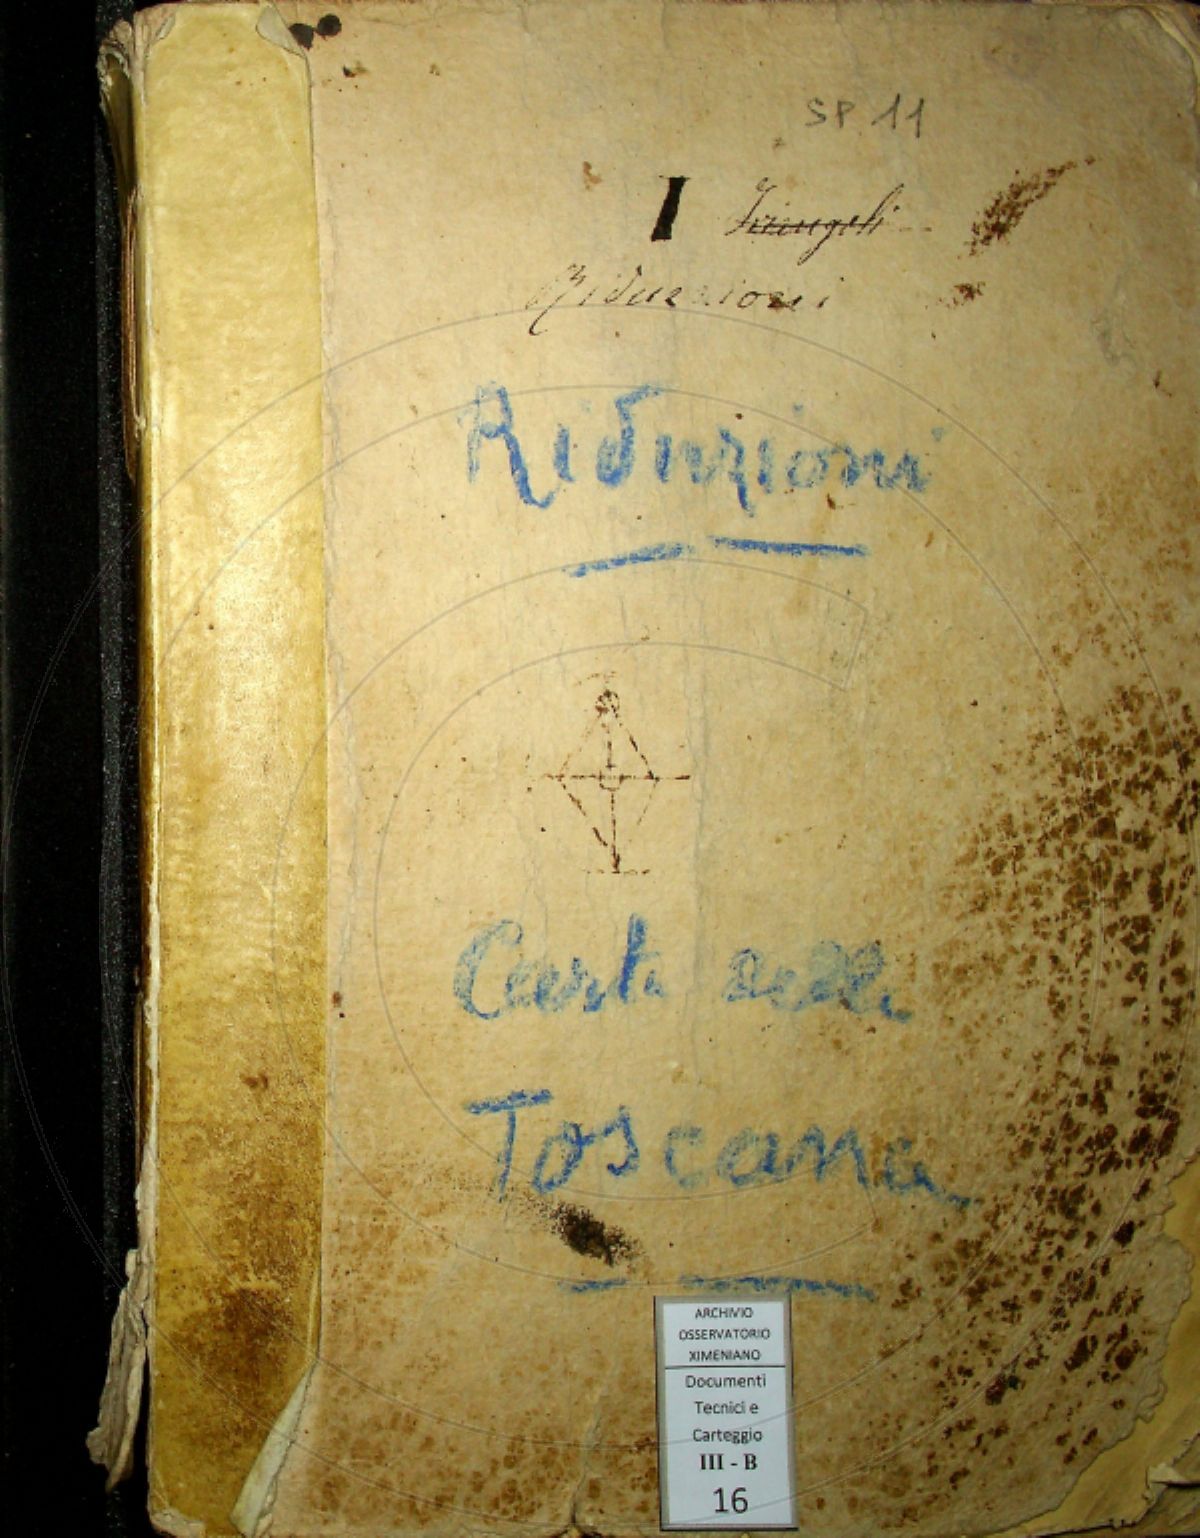 SP 11
I Triangoli
Riduzioni
Riduzioni
Carta della
Toscana
ARCHIVIO
OSSERVATORIO
XIMENIANO
Documenti
Tecnici e
Carteggio
III - B
16